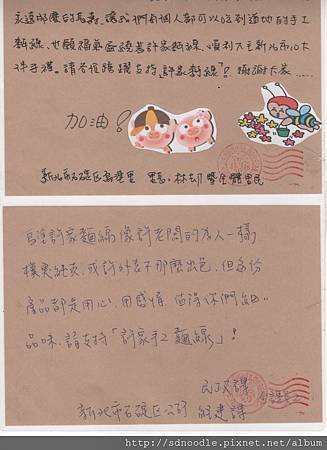 永遠那麼的長壽，讓我們每個人都可以吃到道地的手工
麵線，也願福氣圍繞著許家麵線，順利入選新北市10大
伴手禮。請各位踴躍支持「許家麵線」！謝謝大家……
加油！
新北市石碇區 里 里長 林 暨全體里民
許家麵線像許老闆的為人一樣
樸實純真，或許外表不那麼出色，但每份
產品都是用心、用感情，值得你們細細
品味，請支持「許家手工麵線」！
民政課
新北市石碇區公所
http://sdnoodle.pixnet.net/album